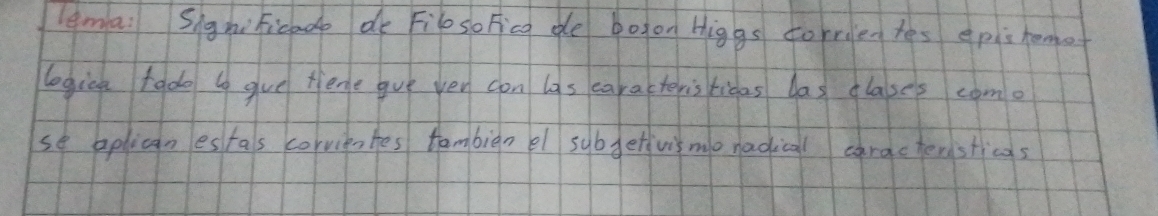 Tema: Significado de Filosofico de boson Higgs corrientes epistemo-
logica todo lo que tiene que ver con las caracteristicas las clases como
se aplican estas corrientes tambien el subgetivismo radical caracteristicas